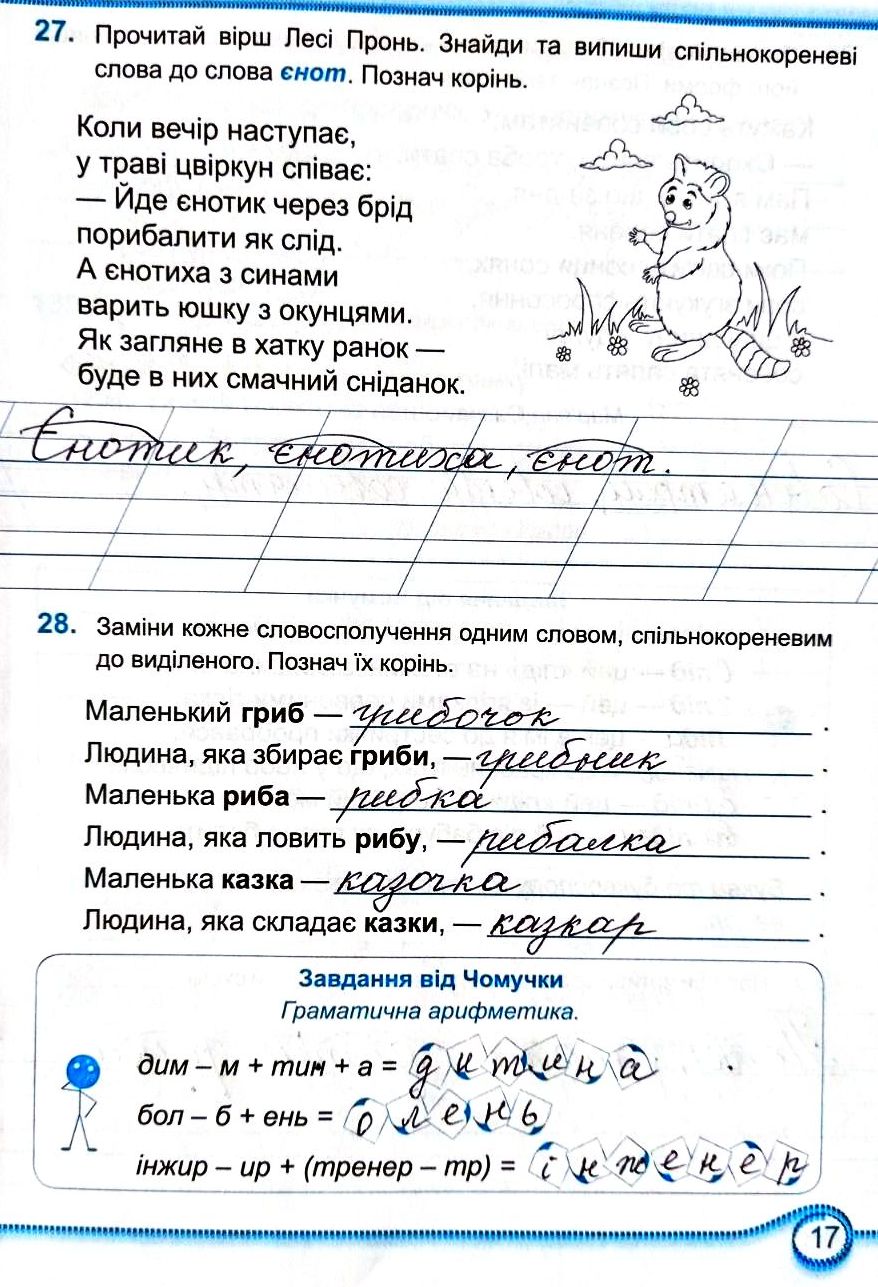 27. Прочитай вірш Лесі Пронь. Знайди та випиши спільнокореневі
слова до слова єнот. Познач корінь.
Коли вечір наступає,
у траві цвіркун співає:
— Йде єнотик через брід
порибалити як слід.
А єнотиха з синами
варить юшку з окунцями.
Як загляне в хатку ранок —
буде в них смачний сніданок.
Єнотик, єнотиха, єнот.
28. Заміни кожне словосполучення одним словом, спільнокореневим
до виділеного. Познач їх корінь.
Маленький гриб — грибочок.
Людина, яка збирає гриби, — грибник.
Маленька риба — рибка.
Людина, яка ловить рибу, — рибалка.
Маленька казка — казочка.
Людина, яка складає казки, — казкар.
Завдання від Чомучки
Граматична арифметика.
дим – м + тин + а = дитина.
бол – б + ень = олень
інжир – ир + (тренер – тр) = інженер
17